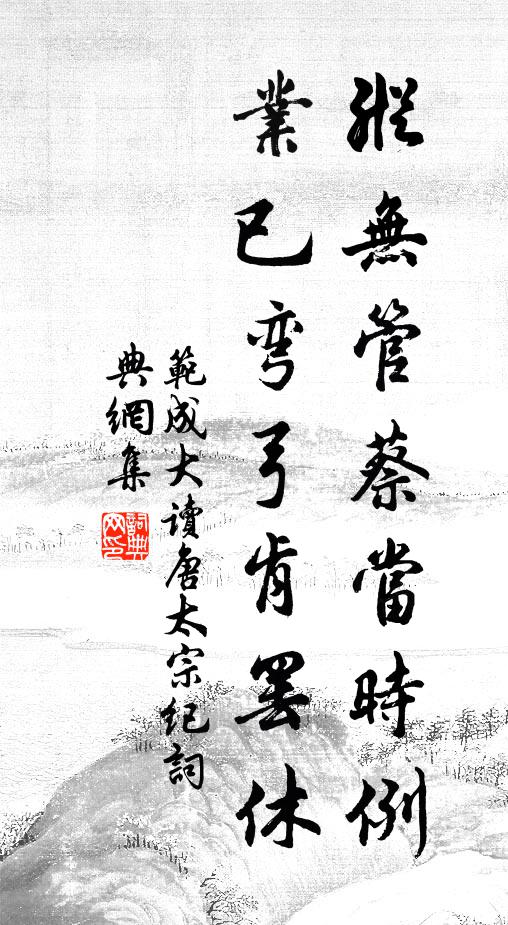 縱無管蔡當時例
業已彎弓肯罷休
範成大讀唐太宗紀詞
典網集
詞典